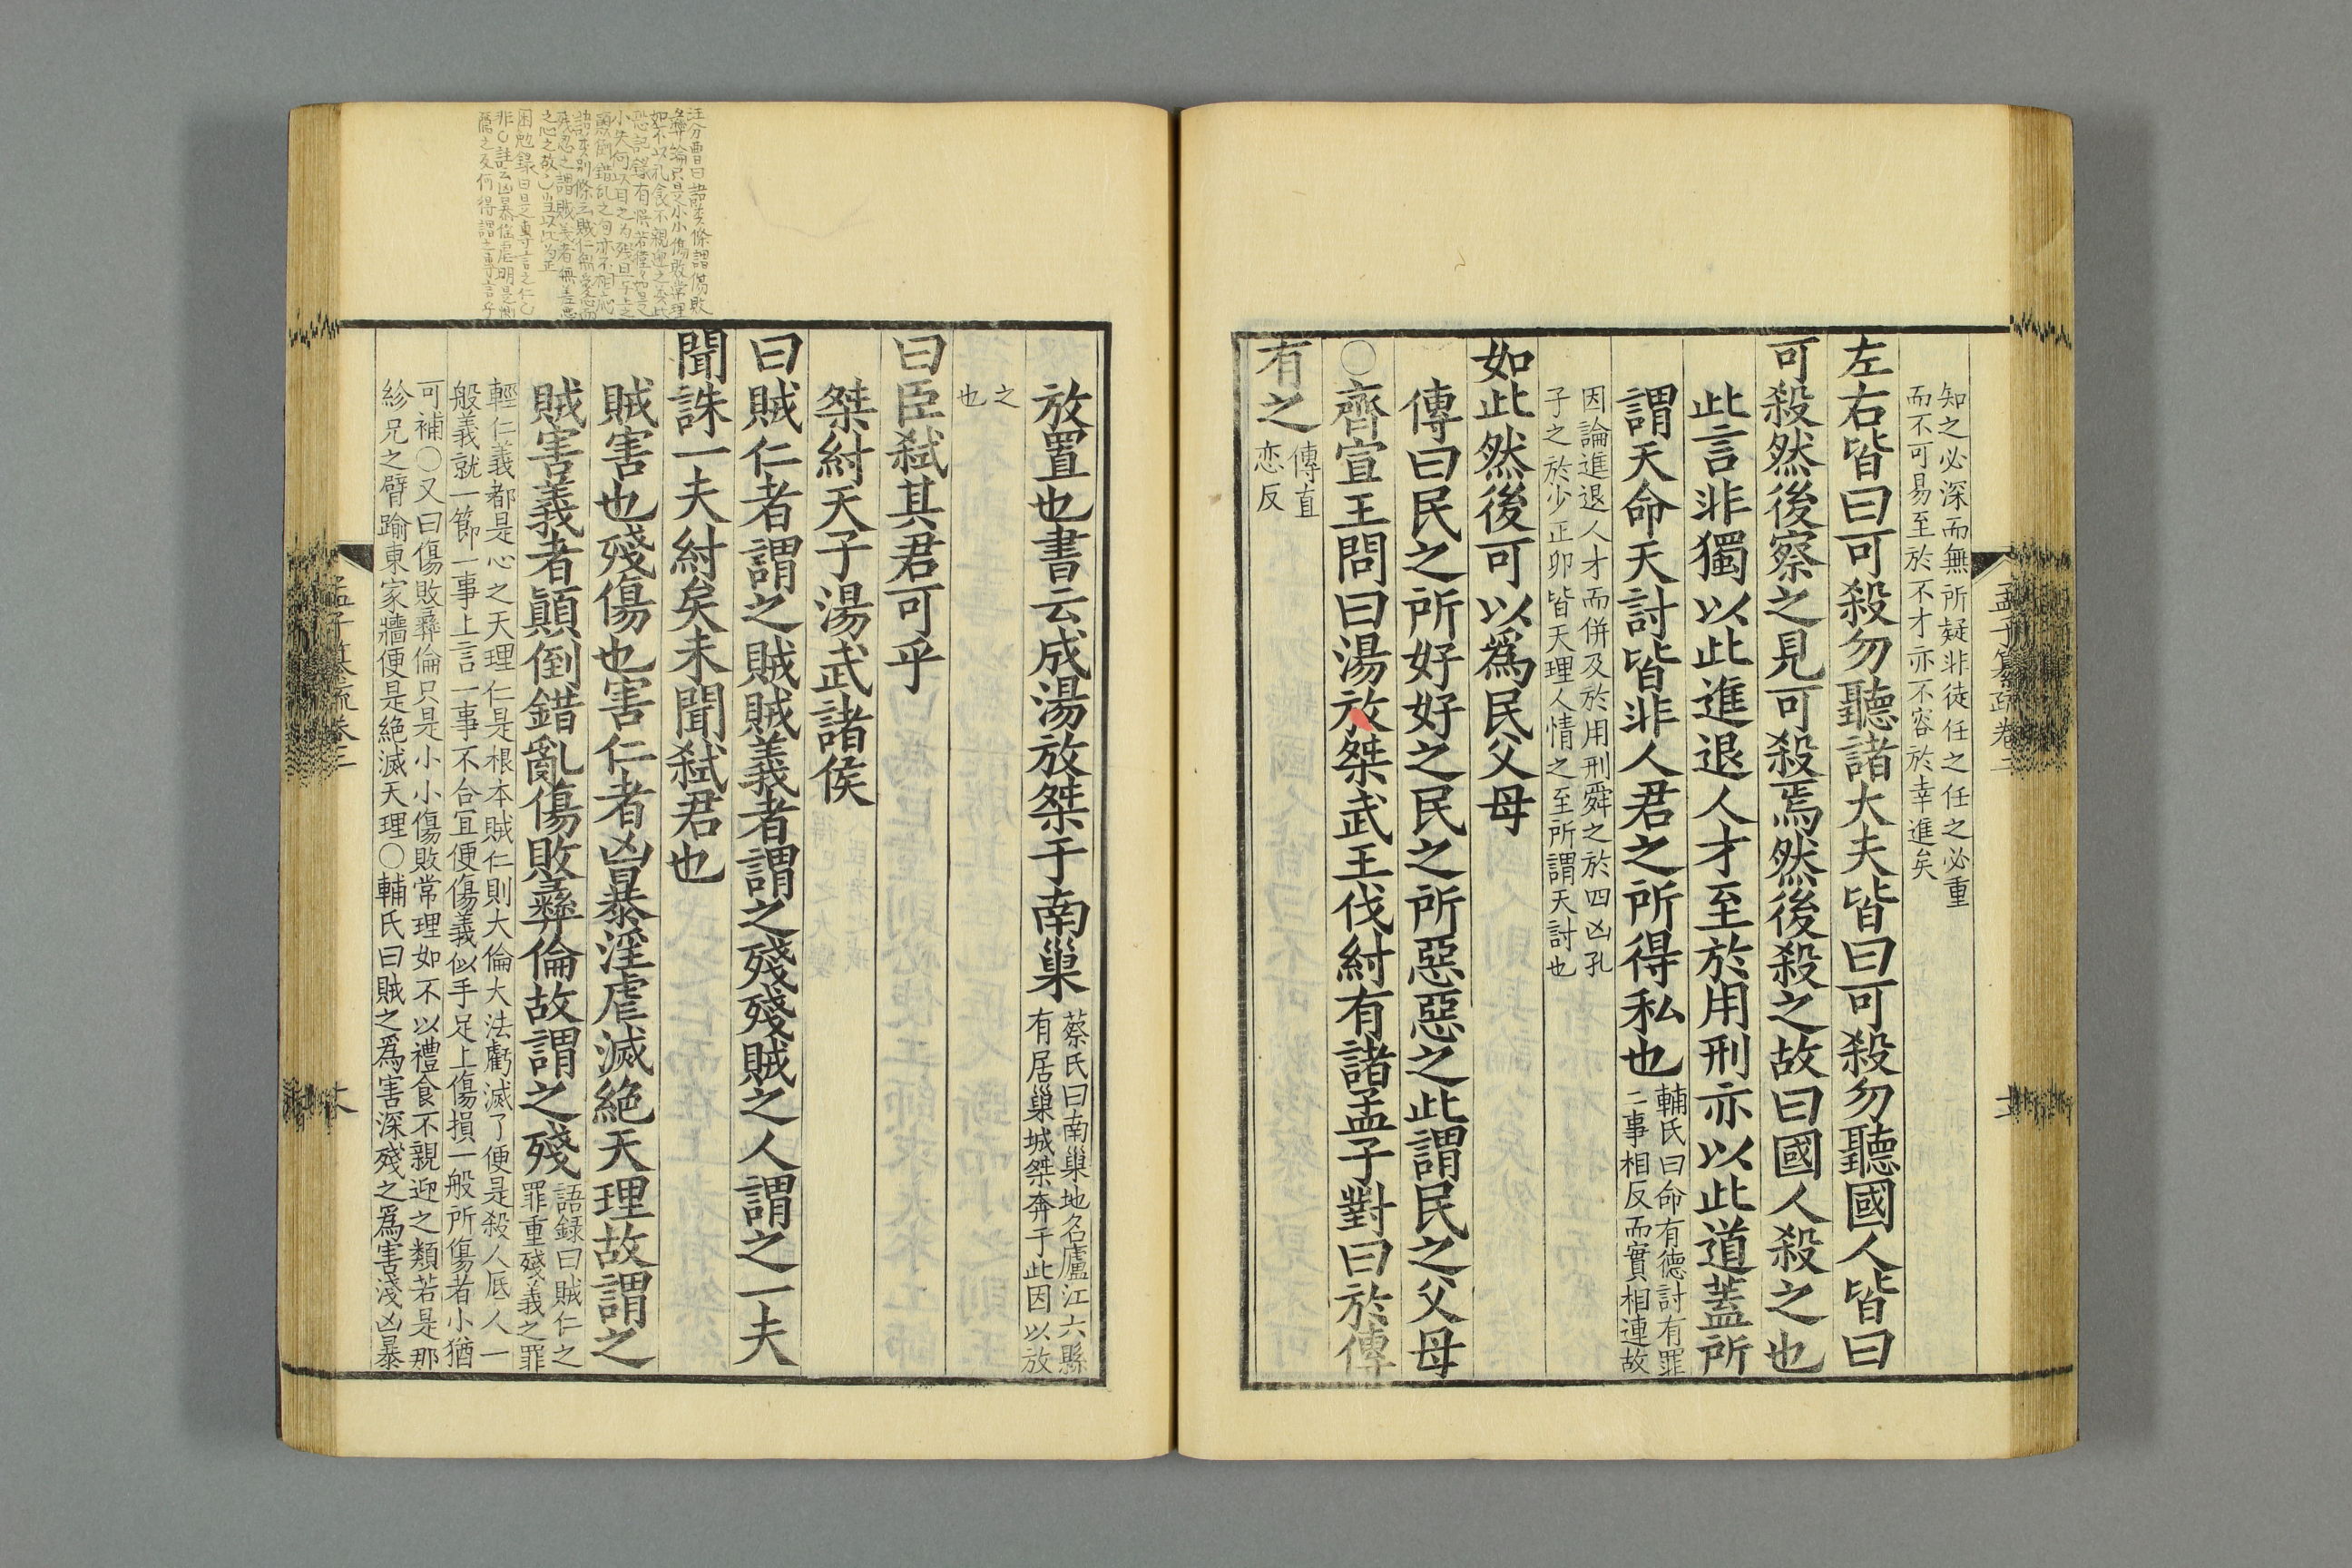 孟子纂疏卷二
知之必深而無所疑非徒任之任之必重
而不可易至於不才亦不容於幸進矣
左右皆曰可殺勿聽諸大夫皆曰可殺勿聽國人皆曰
可殺然後察之見可殺焉然後殺之故曰國人殺之也
此言非獨以此進退人才至於用刑亦以此道蓋所
謂天命天討皆非人君之所得私也
輔氏曰命有德討有罪
二事相反而實相連故
因論進退人才而併及於用刑舜之於四凶孔
子之於少正卯皆天理人情之至所謂天討也
如此然後可以爲民父母
傳曰民之所好好之民之所惡惡之此謂民之父母
○齊宣王問曰湯放桀武王伐紂有諸孟子對曰於傳
有之
傳直
恋反
放置也書云成湯放桀于南巢
蔡氏曰南巢地名廬江六縣
有居巢城桀奔于此因以放
之
也
曰臣弑其君可乎
桀紂天子湯武諸侯
曰賊仁者謂之賊賊義者謂之殘殘賊之人謂之一夫
聞誅一夫紂矣未聞弑君也
賊害也殘傷也害仁者凶暴淫虐滅絕天理故謂之
賊害義者顚倒錯亂傷敗彞倫故謂之殘
語録曰賊仁之
罪重殘義之罪
輕仁義都是心之天理仁是根本賊仁則大倫大法虧滅了便是殺人厎人一
般義就一節一事上言一事不合宜便傷義似手足上傷損一般所傷者小猶
可補○又曰傷敗彞倫只是小小傷敗常理如不以禮食不親迎之類若是那
紾兄之臂踰東家牆便是絶滅天理○輔氏曰賊之爲害深殘之爲害淺凶暴
孟子纂疏卷二
汪分曹曰語類條謂傷敗
彞倫只是小小傷敗常理
如不以礼食不親迎之類此
恐記錄有誤若僅如是
小失何以目之为殘且与上之
顛倒錯亂之句亦不相応
語類別條云賊仁無愛心而
殘忍之謂賊義者無羞惡
之心之故已当以此为正
困勉錄曰是專言之仁乙